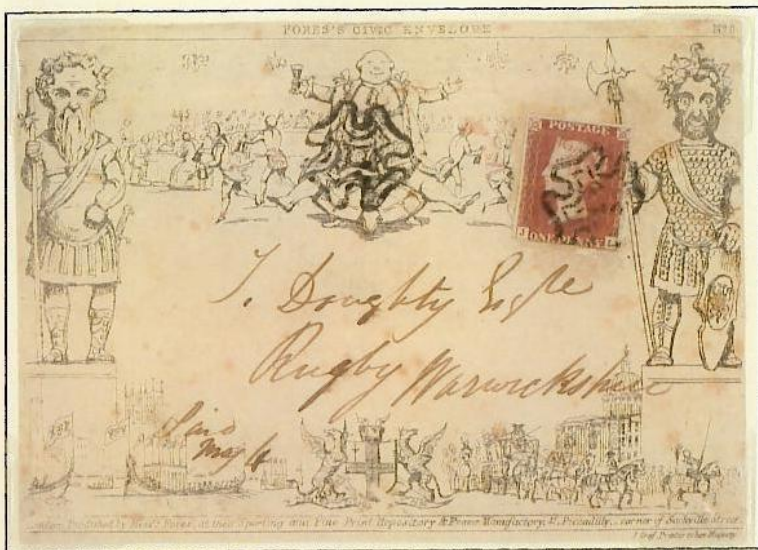 FORES'S CIVIC ENVELOPE
POSTAGE
ONE PENNY
T. Doughty Esqre
Rugby Warwickshire
Paid
May 4
London, Published by Messrs. Fores, at their Sporting and Fine Print Repository & Frame Manufactory, 41, Piccadilly, corner of Sackville Street.
J. Graf, Printer to her Majesty